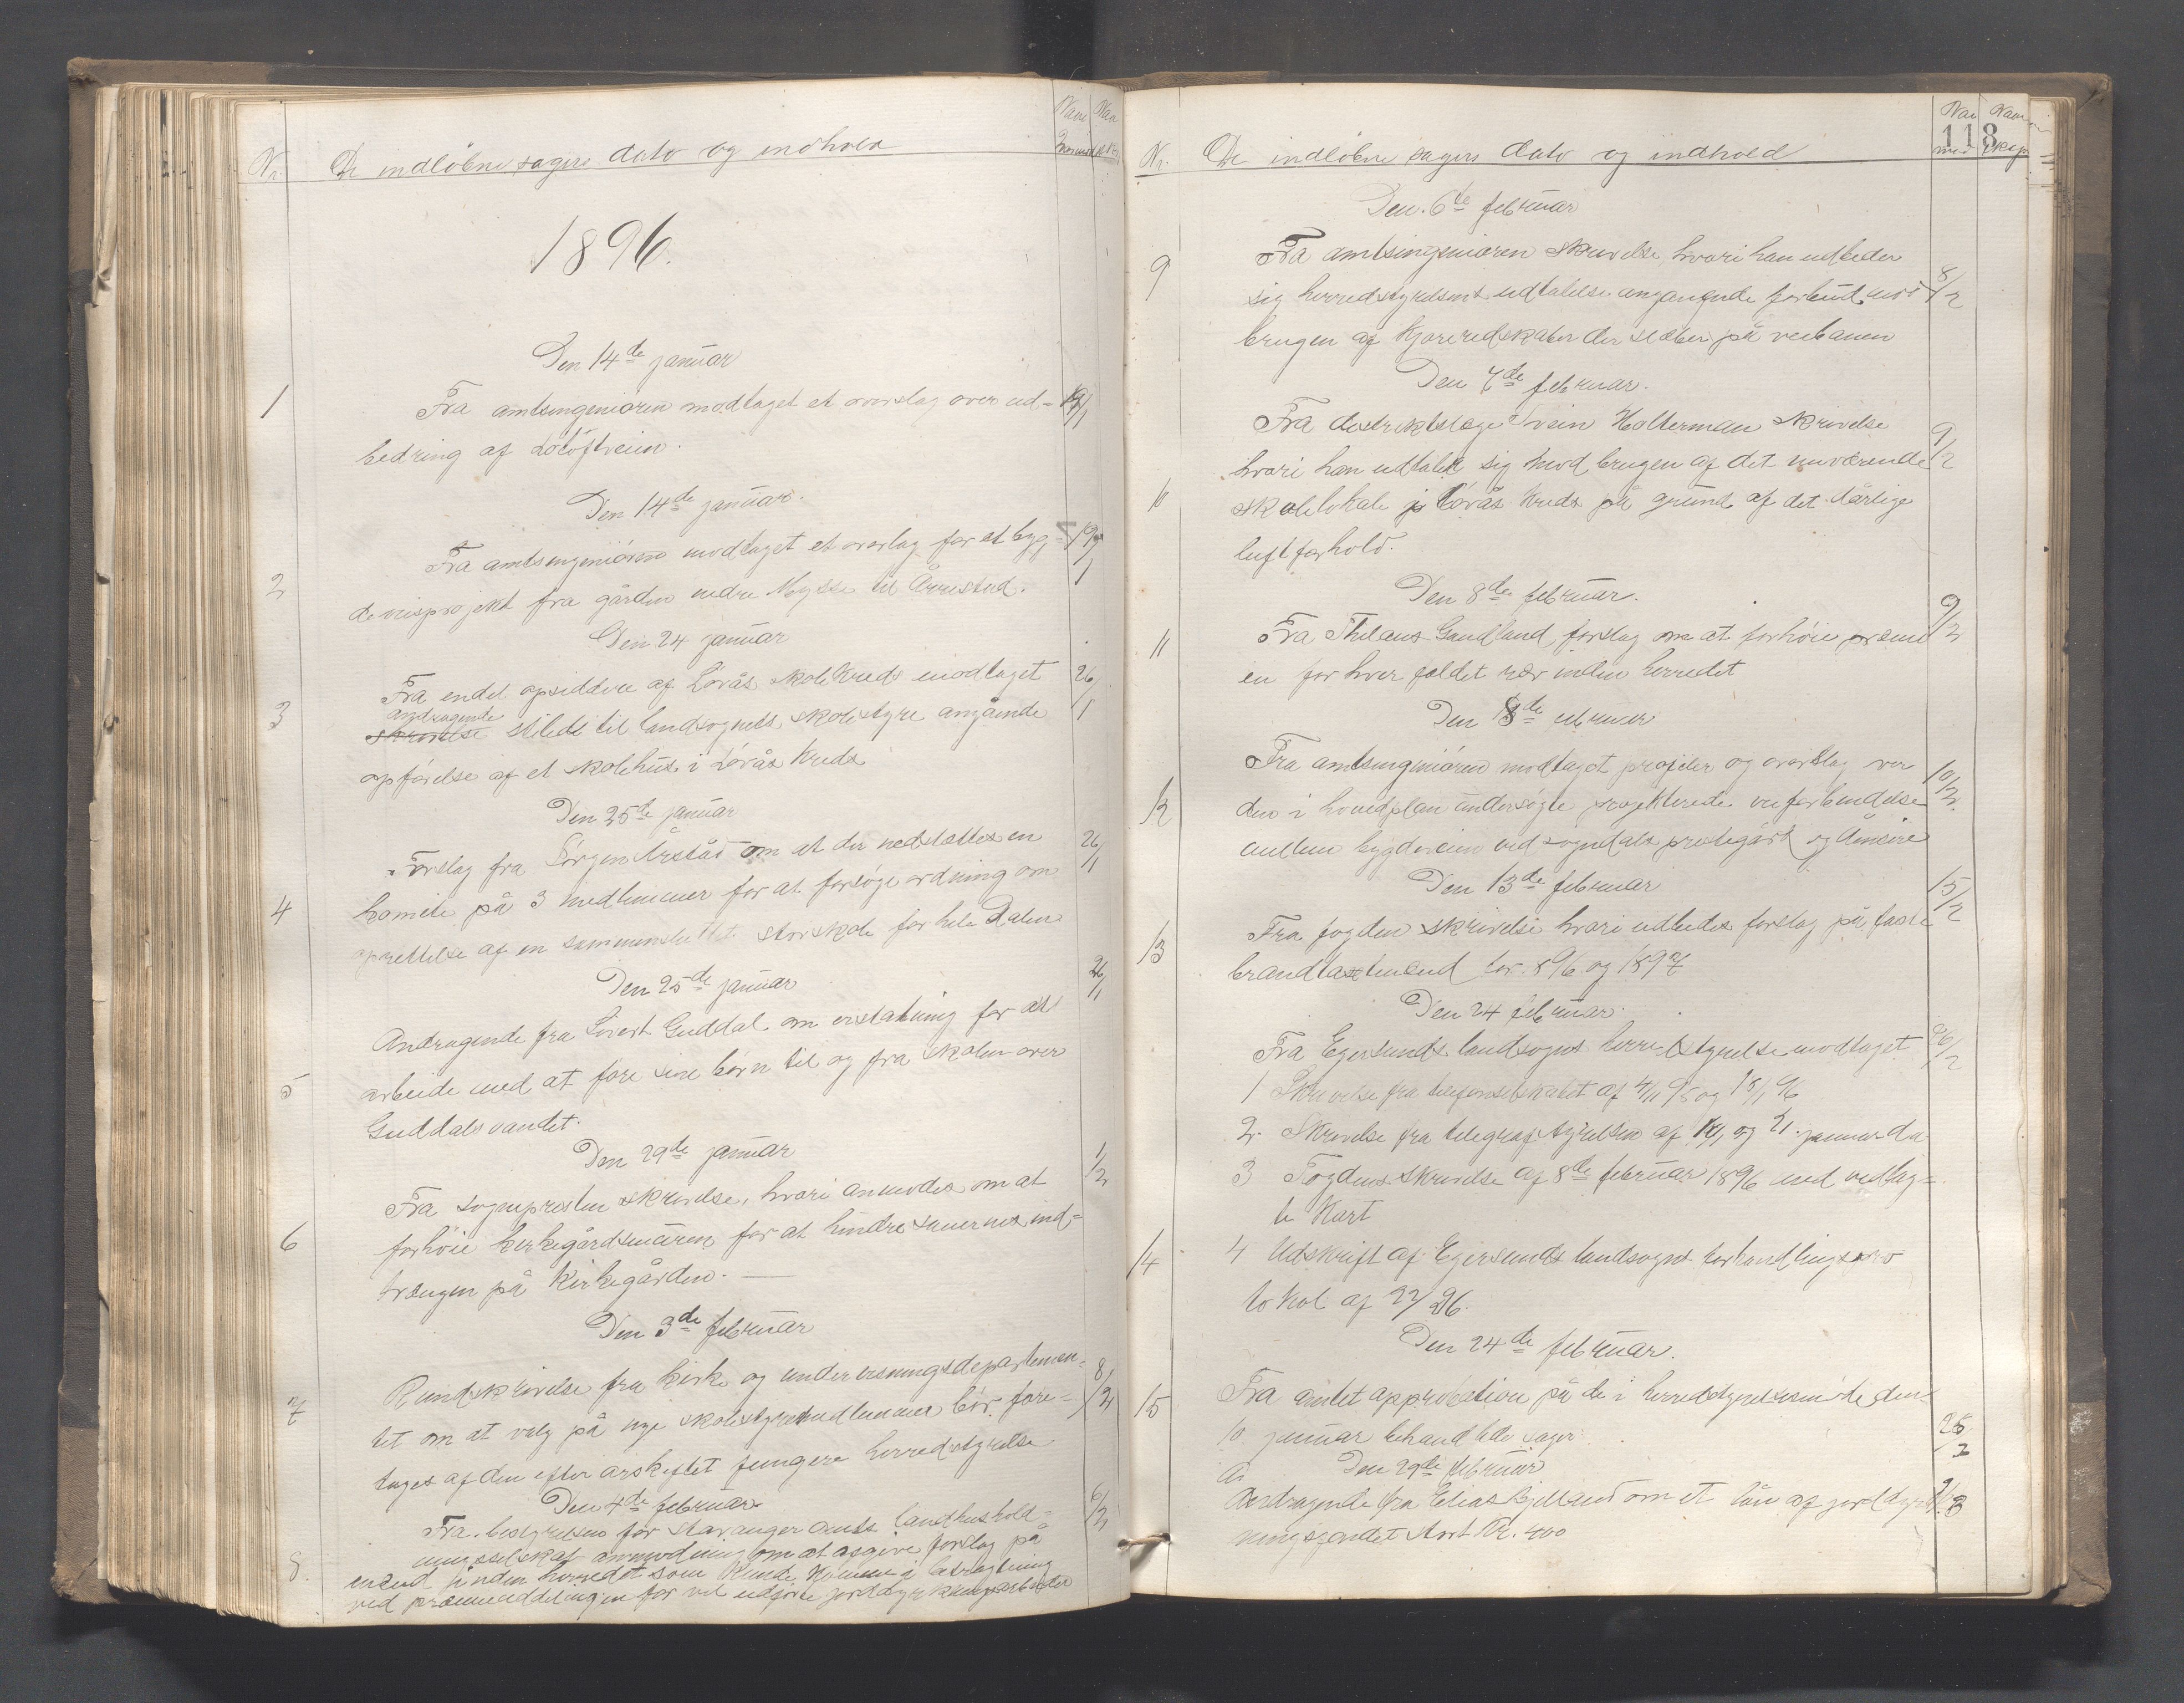 Nr. De indløbne sagers dato og indhold
1896.
Den 14de januar
1 Fra amtsingeniøren modtaget et overslag over ud- 19/1
bedring af Løtoftveien.
Den 14de januar.
Fra amtsingeniøren modtaget et overlag for et byg- 19/1
2 deveisprojekt fra gården nedre Mysse til Årrestad.
Den 24 januar
Fra endel opsiddere af Løvås skolekreds modtaget 26/1
3 andragende
skrivelse stilede til landsognets skolestyre angående
opførelse af et skolehus i Løvås kreds
Den 25de januar
Forslag fra Sørgen Årstad om at der nedsættes en 26/1
4 komite på 3 medlemmer for at forsøge ordning om
oprettelse af en sammensluttet storskole for hele Dalen
Den 25de januar 26/1
Andragende fra Sivert Guddal om erstatning for at
5 arbeide med at føre sine børn til og fra skolen over
Guddalsvandet.
Den 29de januar 1/2
Fra sognepresten skrivelse, hvori anmodes om at
6 forhøie kirkegårdsmuren for at hindre sauernes ind-
trængen på kirkegården.
Den 3de februar
7 Rundskrivelse fra kirke og undervisningsdepartemen- 8/2
tet om at valg på nye skolestyremedlemmer bør fore-
tages af den efter årskiftet fungere herredsstyrelse
Den 4de februar 6/2
Fra bestyrelsen for Stavanger amts landhushold-
8. ningsselskab anmodning om at afgive forslag på
mænd inden herredet som kunde komme i betragtning
ved præmieuddelingen for vel udførte jorddyrkningsarbeider
118
Nr. De indløbne sagers dato og indhold
Den 6te februar
9 Fra amtsingeniøren skrivelse, hvori han udbeder
sig herredstyrelsens udtalelse angående forbud mod 8/2
brugen af kjøreredskaber der slæber på veibanen
Den 7de februar.
Fra distriktslæge Svein Holterman skrivelse 9/2
hvori han udtaler sig mod brugen af det nuværende
10 skolelokale i Løvås kreds på grund af det dårlige
luftforhold.
Den 8de februar.
11 Fra Thilans Gandland forslag om at forhøie præmi 9/2
en for hver fældet ræv inden herredet
Den 8de februar
Fra amtsingeniøren modtaget profiler og overslag over 10/2
12 den i hovedplan undersøgte projekterede veiforbindelse
mellem bygdeveien ved sogndals prestegård og Åmeire
Den 13de februar 15/2
13 Fra fogden skrivelse hvori udbedes forslag på faste
brandtaxtmænd for 1896 og 1897
Den 24 februar.
Fra Egersunds landsogns herredstyrelse modtaget 26/2
1 Skrivelse fra telefonselskabet af 4/11 95 og 18/1 96
2. Skrivelse fra telegrafstyrelsen af og 21 januar da
3 Fogdens skrivelse af 8de februar 1896 med vedlag-
te kart
14 4 Udskrift af Egersunds landsogns forhandlingspro
tokol af 22/2 96.
Den 24de februar.
15 Fra amtet approbation på de i herredstyrelsesmøde den
10 januar behandlede sager 26/2
Den 29de februar
Andragende fra Elias Kjelland om et lån af jorddyrk 2/3
ningsfondet stort Kr. 400